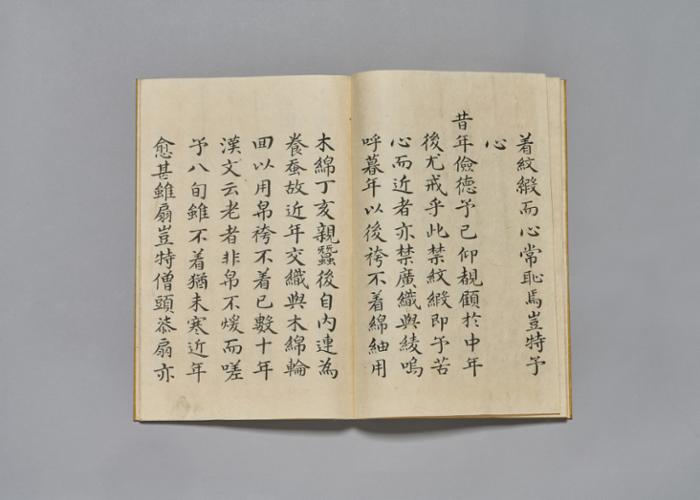 着紋緞而心常恥焉豈特予
心
昔年儉德予已仰覩顧於中年
後尤戒乎此禁紋緞即予苦
心而近者亦禁廣織與綾嗚
呼暮年以後袴不着綿紬用
木綿丁亥親蠶後自內連為
養蚕故近年交織與木綿輪
回以用帛袴不着已數十年
漢文云老者非帛不煖而嗟
予八旬雖不着猶未寒近年
愈甚雖扇豈特僧頭漆扇亦